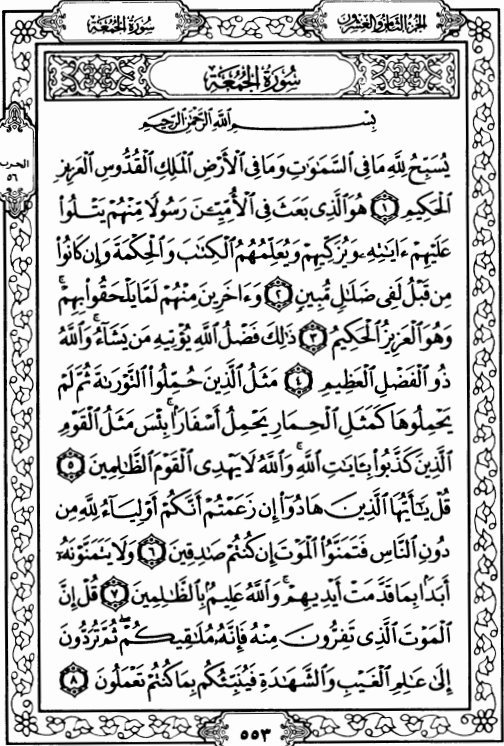 سُورَةُ الجُمُعَة
الجُزءُ الثَّامِنُ وَالعِشْرُونَ
سُورَةُ الجُمُعَةِ
بِسْمِ ٱللَّهِ ٱلرَّحْمَٰنِ ٱلرَّحِيمِ
الحزب
٥٦
يُسَبِّحُ لِلَّهِ مَا فِي ٱلسَّمَٰوَٰتِ وَمَا فِي ٱلْأَرْضِ ٱلْمَلِكِ ٱلْقُدُّوسِ ٱلْعَزِيزِ
ٱلْحَكِيمِ ١ هُوَ ٱلَّذِي بَعَثَ فِي ٱلْأُمِّيِّـۧنَ رَسُولًا مِّنْهُمْ يَتْلُوا۟
عَلَيْهِمْ ءَايَٰتِهِۦ وَيُزَكِّيهِمْ وَيُعَلِّمُهُمُ ٱلْكِتَٰبَ وَٱلْحِكْمَةَ وَإِن كَانُوا۟
مِن قَبْلُ لَفِي ضَلَٰلٍ مُّبِينٍ ٢ وَءَاخَرِينَ مِنْهُمْ لَمَّا يَلْحَقُوا۟ بِهِمْ ۚ
وَهُوَ ٱلْعَزِيزُ ٱلْحَكِيمُ ٣ ذَٰلِكَ فَضْلُ ٱللَّهِ يُؤْتِيهِ مَن يَشَآءُ ۚ وَٱللَّهُ
ذُو ٱلْفَضْلِ ٱلْعَظِيمِ ٤ مَثَلُ ٱلَّذِينَ حُمِّلُوا۟ ٱلتَّوْرَىٰةَ ثُمَّ لَمْ
يَحْمِلُوهَا كَمَثَلِ ٱلْحِمَارِ يَحْمِلُ أَسْفَارًۢا ۚ بِئْسَ مَثَلُ ٱلْقَوْمِ
ٱلَّذِينَ كَذَّبُوا۟ بِـَٔايَٰتِ ٱللَّهِ ۚ وَٱللَّهُ لَا يَهْدِي ٱلْقَوْمَ ٱلظَّٰلِمِينَ ٥
قُلْ يَٰٓأَيُّهَا ٱلَّذِينَ هَادُوٓا۟ إِن زَعَمْتُمْ أَنَّكُمْ أَوْلِيَآءُ لِلَّهِ مِن
دُونِ ٱلنَّاسِ فَتَمَنَّوُا۟ ٱلْمَوْتَ إِن كُنتُمْ صَٰدِقِينَ ٦ وَلَا يَتَمَنَّوْنَهُۥٓ
أَبَدًۢا بِمَا قَدَّمَتْ أَيْدِيهِمْ ۚ وَٱللَّهُ عَلِيمٌۢ بِٱلظَّٰلِمِينَ ٧ قُلْ إِنَّ
ٱلْمَوْتَ ٱلَّذِي تَفِرُّونَ مِنْهُ فَإِنَّهُۥ مُلَٰقِيكُمْ ۖ ثُمَّ تُرَدُّونَ
إِلَىٰ عَٰلِمِ ٱلْغَيْبِ وَٱلشَّهَٰدَةِ فَيُنَبِّئُكُم بِمَا كُنتُمْ تَعْمَلُونَ ٨
٥٥٣